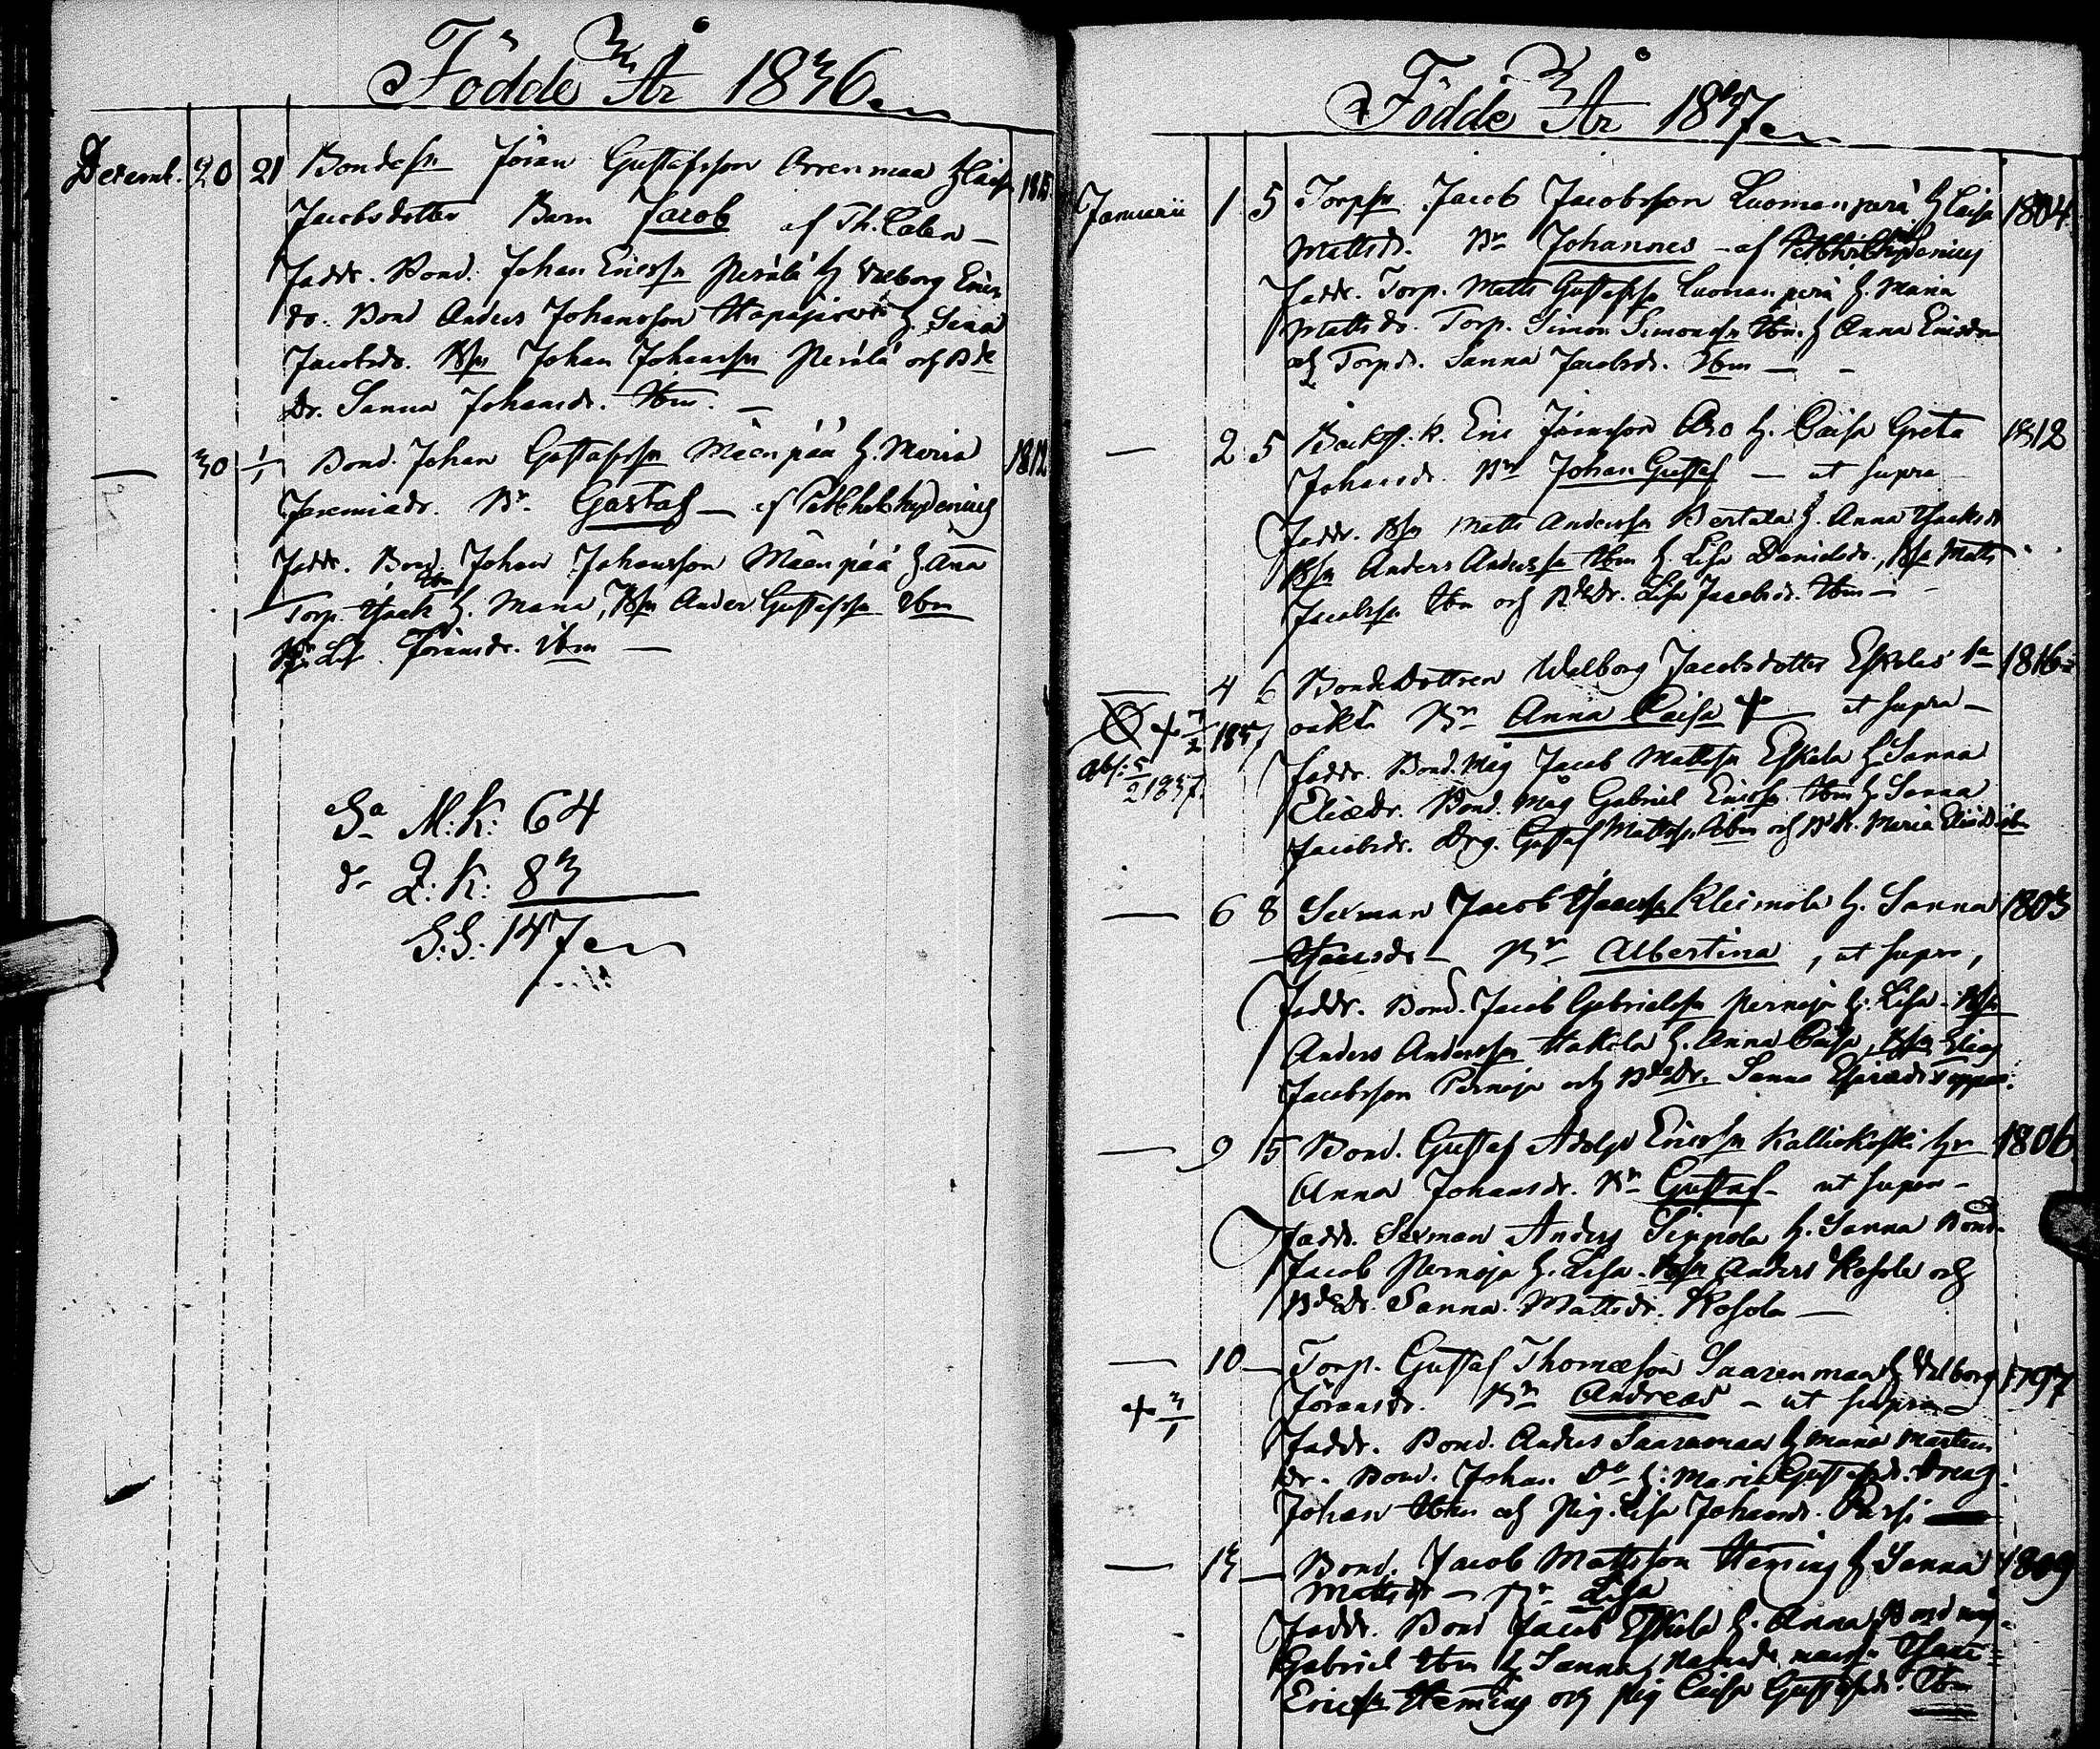 Födde År 1836
Decemb. 20 21 Bondesn Jöran Gustafsson Orrenmaa H Caisa 1815
Jacobsdotter Barn Jacob af Th. Calen –
Faddr. Bond. Johan Ericssn Perälä H Walborg Erics
dr. Bond Anders Johansson Hapajärvi H. Sanna
Jacobsdr. Bsn Johan Johanssn Perälä och Bde
Dr. Sanna Johansdr. Ibm. –
— 30 1/1 Bond. Johan Gustafssn Mäenpää H. Maria 1812
Jeremiædr. Bn Gustaf – af
Faddr. Bond. Johan Johansson Mäenpää H Anna
Torp. Isaak Ibm H. Maria, Bsn Ander Gustafssn Ibm
Jöransdr. Ibm —
Sa M:K: 64
do Q:K: 83
S:S: 147
Födde År 1837
Januarii 1 5 Torpsn Jacob Jacobsson Luomanperä H Caisa 1804
Mattsdr. Bn Johannes – af
Faddr. Torp. Matts Gustafssn Luomanperä H. Maria
Mattsdr. Torp. Simon Simonssn Ibm H Anna Ericsdr
och Torpdr. Sanna Jacobsdr. Ibm —
— 2 5 Backst. k. Eric Jöransson Aro H. Caisa Greta 1812
Johansdr. Bn Johan Gustaf — ut supra
Faddr. Bsn Matts Anderssn Bertala H. Anna Isaksdr
Bsn Anders Anderssn Ibm H Lisa Danielsdr., Bsn Matts
Jacobssn Ibm och BdeDr. Lisa Jacobsdr. Ibm —
— 4 6 Bondedottren Walborg Jacobsdotter Eskelas 1816
oäkta Bn Anna Caisa + ut supra –
+ 7/2 1837
Abs: 5/2 1837.
Faddr. Bond. Måg Jacob Mattssn Eskela H Sanna
Eliædr. Bond. Måg Gabriel Ericssn Ibm H. Sanna
Jacobsdr. Drg. Gustaf Mattssn Ibm och Bd Dr. Maria Eliædr Ibm
— 6 8 Sexman Jacob Isaacssn Kleimola H. Sanna 1803
Isaacsdr – Bn Albertina, ut supra,
Faddr. Bond. Jacob Gabrielssn Pernaja H: Lisa – Bsn
Anders Anderssn Hakola H. Anna Caisa, Bsn Elias
Jacobsson Pernaja och BdeDr. Sanna
— 9 15 Bond. Gustaf Adolf Ericssn Kalliokoski Hu 1806
Anna Johansdr. Bn Gustaf – ut supra –
Faddr. Sexman Anders Sippola H. Sanna Bond.
Jacob Pernaja H. Lisa. Bsn Anders Kosola och
BdeDr. Sanna Mattsdr. Kosola —
— 10 — Torp. Gustaf Thomæson Saarenmaa H Walborg 1797
+ 3/1 Jöransdr. Bn Andreas – ut supra
Faddr. Bond. Anders Saarenmaa H Maria Mårtens
dr. Bond. Johan Do H: Maria Gustafsdr. Dreng
Johan Ibm och Pig. Lisa Johansdr. Passi —
— 13 — Bond. Jacob Mattsson Heming H Sanna 1809
Mattsdr – Bn Lisa
Faddr. Bond Jacob Eskela H. Anna, Bond måg
Gabriel Ibm H Sanna, Isaac
Ericssn Heming och Pig Caisa Gustafsdr. Ibm